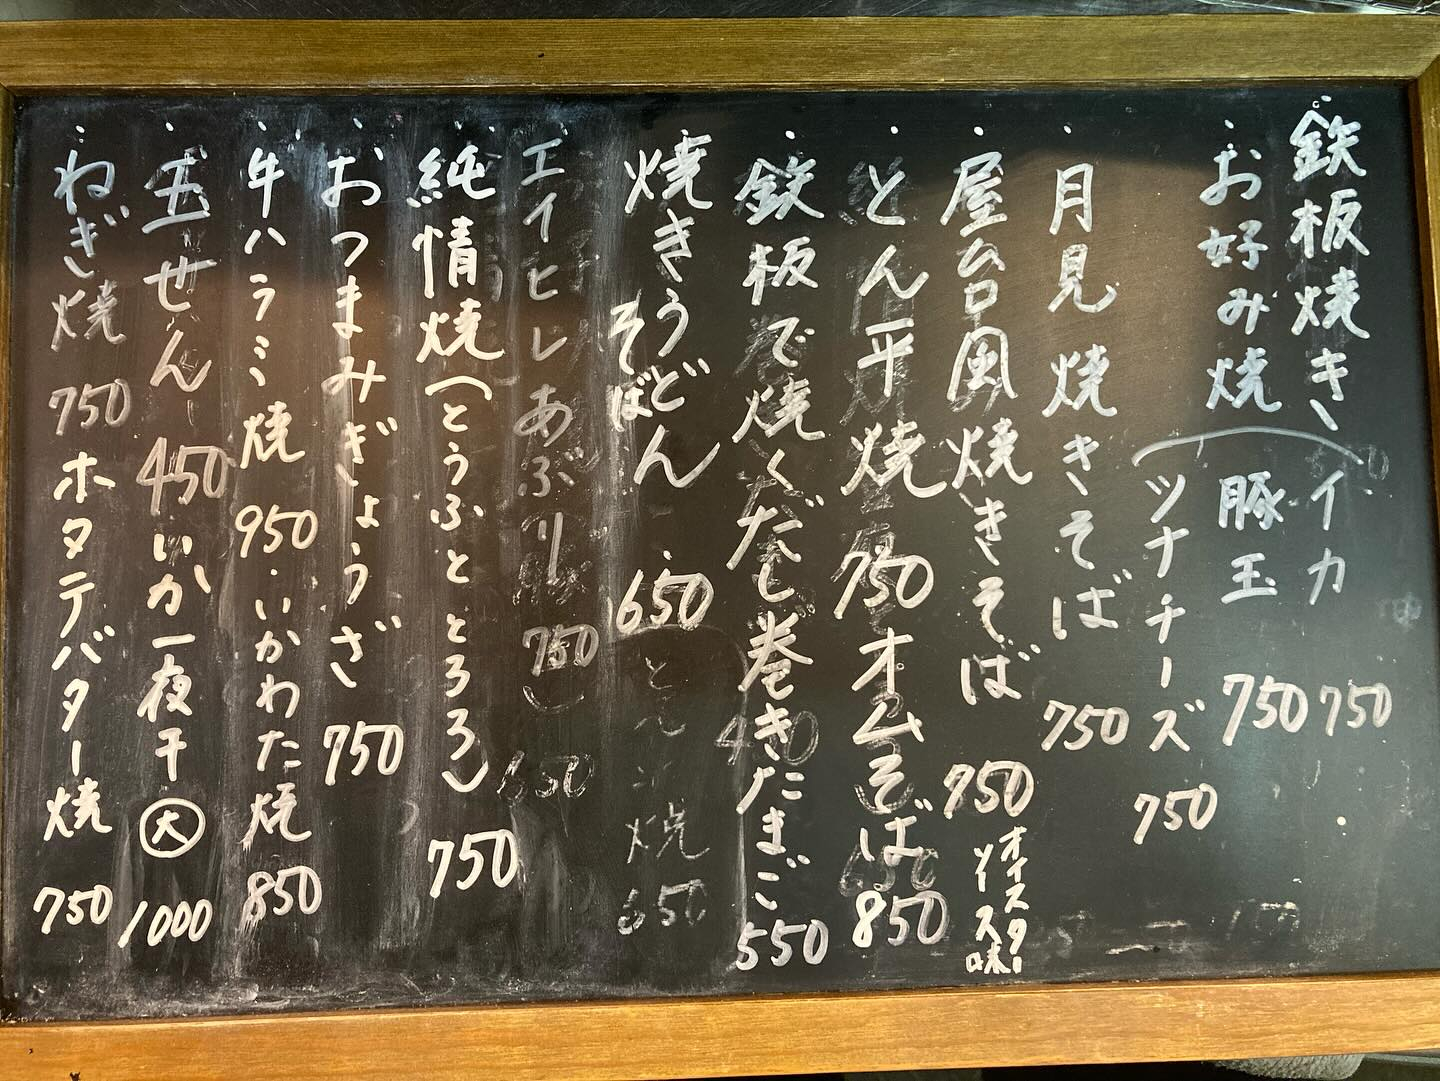 ・鉄板焼き、イカ 750
・お好み焼 豚玉 750
ツナチーズ 750
・月見焼きそば 750
・屋台風焼きそば 750 オイスターソース味
・とん平焼 750 オムそば 850
・鉄板で焼くだし巻きたまご 550
・焼きうどん 650
そば
焼 650
・エイヒレあぶり 750
650
・純情焼(とうふととろろ) 750
・おつまみぎょうざ 750
・牛ハラミ焼 950・いかわた焼 850
・玉せん 450 いか一夜干 大 1000
・ねぎ焼 750 ホタテバター焼 750